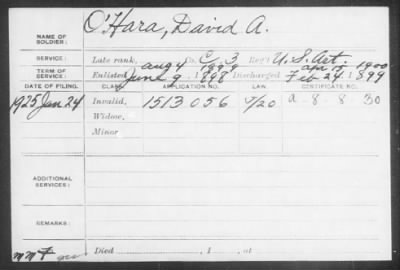 O'Hara, David A.
NAME OF SOLDIER:
SERVICE: Late rank, Co. C, 3 Reg't U.S. Art.
Aug 4 1899 Apr 15, 1900
TERM OF SERVICE: Enlisted June 9, 1898 Discharged Feb 24, 1899
DATE OF FILING. CLASS. APPLICATION NO. LAW. CERTIFICATE NO.
1925 Jan 24 Invalid, 1513056 5/20 a-8-8-30
Widow,
Minor
ADDITIONAL SERVICES:
REMARKS:
Died , 1 , at